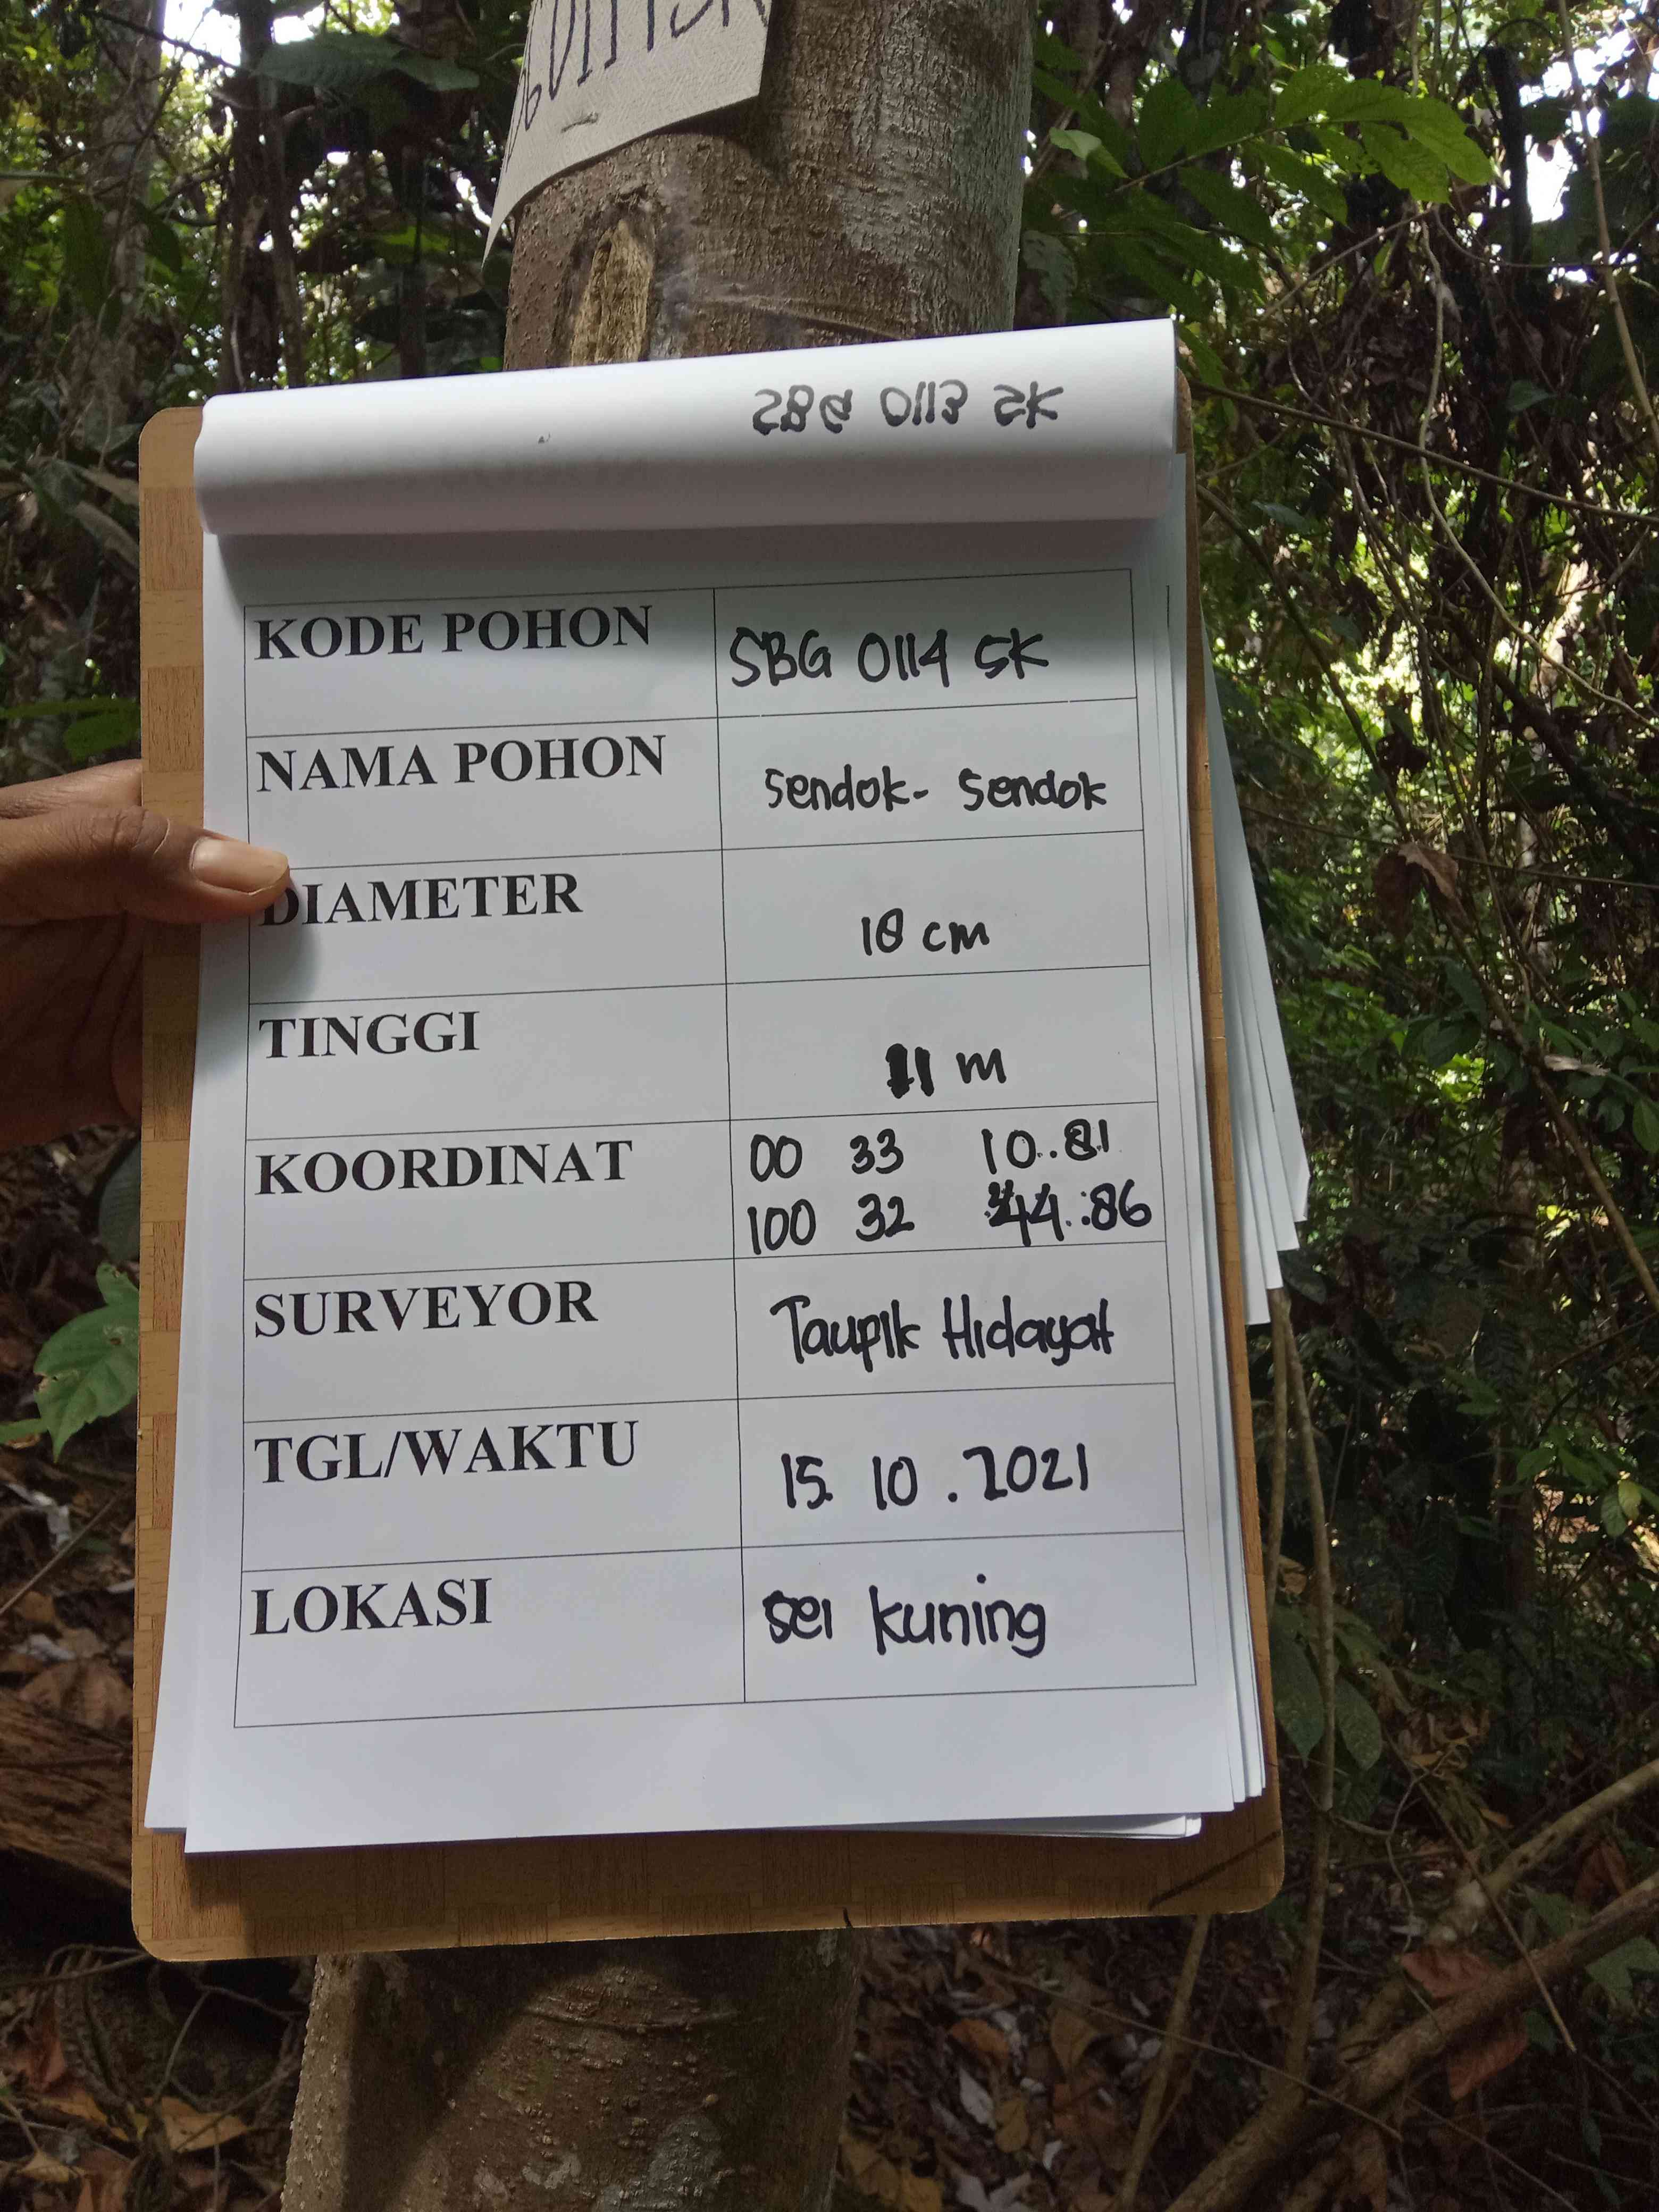 SBG 0113 SK
KODE POHON SBG 0114 SK
NAMA POHON Sendok- Sendok
DIAMETER 18 cm
TINGGI 11 m
KOORDINAT 00 33 10..81
100 32 44.:86
SURVEYOR Taupik Hidayat
TGL/WAKTU 15. 10 . 2021
LOKASI Sei Kuning